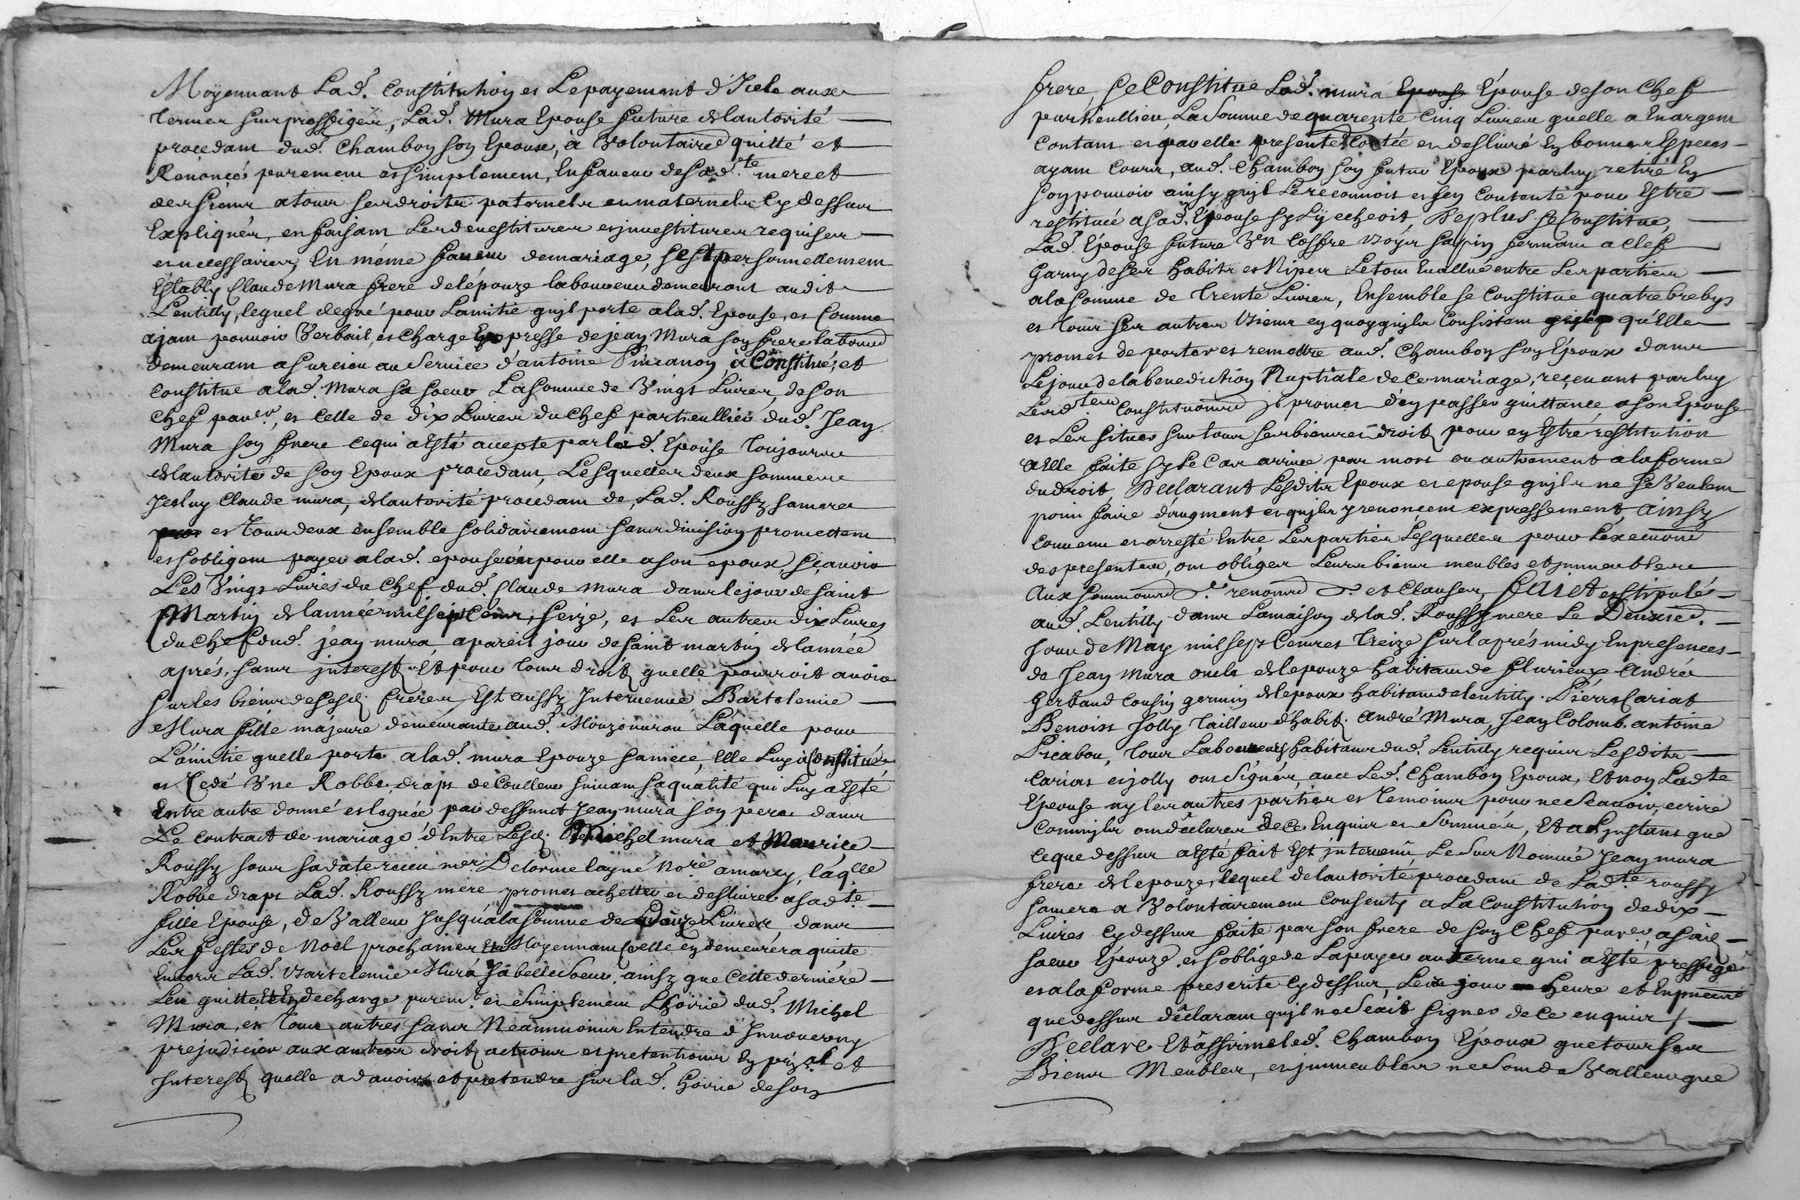 Moyennant Lad. Constitution et Le payement d'Icele aux
termes sus prossigéz, Lad. Mura Epouse future de lautorité
procedam dud. Chambon son Epoux, à volontaire quitté et
Renoncés purement et simplement, En faveur de sad.te mere et
des siens a tous ses droits paternels et maternels Cy dessus
Expliqués, en faisam Les devestitures et jnvestitures requises
et necessaires, En même faveur de mariage, s'est personnellement
Estably Claude Mura frere de lépouze laboureur demeurant audit
Lentilly, lequel de gré pour Lamitié qu'jl porte a lad. Epouse, et Comme
ajam pouvoir Verbail, et Charge Expresse de jean Mura son frere laboureur
demeuram a surcion au Service d'antoine Pinzanon, à Constitué, et
Constitue a lad. Mura sa soeur La somme de Vingt Livres, de son
Chef par.er, et Celle de dix Livres du Chef particullier dud. Jean
Mura son frere Ce qui a esté accepté par lad. Epouse Toujours
de lautorité de son Epoux procedam, Lesquelles deux sommes
Jceluy Claude mura, de lautorité procedam de Lad. Roussy sa mere
et tous deux ensemble solidairement sans division promettem
et sobligem payer a lad. epouse ou pour elle a son epoux, sçavoir
Les Vingt Livres du Chef dud. Claude Mura dans le jour de saint
Martin de lannée mil sept Cens, seize, et Les autres dix Livres
du Chef dud. jean mura, a pareil jour de saint martin de lannée
aprés, sans jnterest et pour tous droits quelle pourroit avoir
sur les biens de sesd. freres, Est aussy Jntervenue Bartelemie
Mura fille majeure demeurante aud. Mouzonerou Laquelle pour
Lamitié quelle porte a lad. mura Epouze sa niece, Elle Luy à Constitué
et Cedé Une Robbe, draps de Coulleur suivam sa qualité qui Luy a esté
Entre autre donné et leguée par deffunct Jean mura son pere dans
Le Contract de mariage d'Entre Lesd. Michel mura et Maurice
Roussy sous sa date receu me. Delorme layné No.re a marcy, laq.lle
Robbe draps Lad. Roussy mere promet achetter et deslivrer a sad.te
fille Epouse, de Valleur Jusqu'a la somme de Douze Livres, dans
Les festes de Noel prochaines En Moyennant Celle en demeurera quitte
Envers Lad. Bartelemie Mura sa belle soeur, ainsy que Cette derniere
Len quitte, et En decharge purem.t et simplement Lhoirie dud. Michel
Mura, et Tous autres sans Neammoins Entendre d'Jnnover ny
prejudicier aux autres droits actions et pretentions En p.al et
Jnterest quelle a d'avoir et pretendre sur lad. hoirie de son
frere, Se Constitue Lad. mura Epouse Epouse de son Chef
particullier, La Somme de quarente Cinq Livres quelle a En argent
Contant et par elle presentée Contée et deslivré En bonnes Especes
ayam Cours, aud. Chambon son futur Epoux par luy retiré En
son pouvoir ainsy qu'jl Le reconnoit et s'en Contente pour Estre
restitué a sad. Epouse sy L'y echeoit De plus se Constitue,
Lad. Epouse future Un Coffre Noyer sappin fermam a Clef
Garny de ses habits et Nipes Le tout Evallué entre Les parties
a la somme de Trente Livres, Ensemble se Constitue quatre brebys
et tous ses autres Biens en quoy qu'jls Consistem qu'Elle
promet de porter et remettre aud. Chambon son Epoux dans
Le jour de la benediction Nuptiale de Ce mariage, reçevant par luy
Lesd.tes Constitutions jl promet d'en passer quittance a son Epouse
et Les situer sur tous ses biens et droits pour en Estre restitution
a Elle faite sy Le Cas arrive par mort ou autrement a la forme
du droit, Declarant Lesdits Epoux et epouse qu'jls ne se Veulem
point faire d'augment et qu'jls y renoncem expressement, ainsy
Convenu et arresté Entre Les parties Lesquelles pour Léxecution
des presentes, ont obligés Leurs biens meubles et jmmeubles
Aux soumission renonc.on et Clauses, Fait et stipulé
aud. Lentilly dans La maison de lad. Roussy mere Le Deuxie.
Jour de May mil sept Centes Treize sur l'aprés midy En presences
de Jean Mura oncle de lepouze habitam de fleurieux André
Gerbaud Cousin germin de lepoux habitam de lentilly. Pierre Cariat
Benoist Jolly Tailleur d'habit. André Mura, Jean Colomb. antoine
Picabou, tous Laboureurs habitans dud. Lentilly requis Lesdits
Carias et jolly ont Signés, avec Led. Chambon Epoux, Et non Lad.te
Epouse ny les autres parties et temoins pour ne Sçavoir ecrire
Comm'jls ont déclarer de Ce Enquis et Sommés, Et a L'jnstant que
Ce que dessus a esté fait Est jntervenu, Le Sus Nommé Jean mura
frere de lepouze, lequel de lautorité procedam de Lad.te roussy
sa mere a Volontairement Consenty a La Constitution de dix
Livres Cy dessus faite par Son frere de son Chef par.er a sad.
soeur Epouze, et s'oblige de La payer au terme qui a esté pressigé
et a la forme prescrite Cy dessus, Les jour Heure et En presence
que dessus déclaram qu'jl ne Sçait signer de Ce enquis /
Declare Et affirme led. Chambon Epoux que tous ses
Biens Meubles, et jmmeubles ne Sont de Valleur que